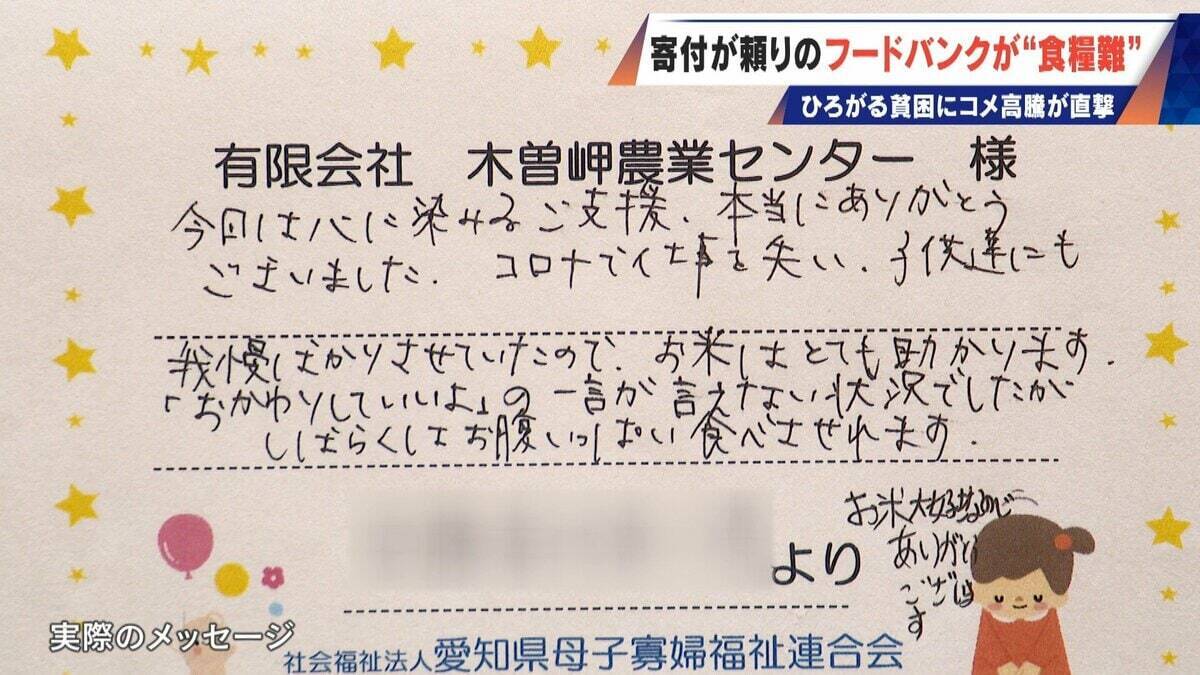 寄付が頼りのフードバンクが“食糧難”
ひろがる貧困にコメ高騰が直撃
有限会社 木曽岬農業センター 様
今回は心に染みるご支援、本当にありがとう
ございました. コロナで仕事を失い、子供達にも
我慢ばかりさせていたので、お米はとても助かります.
「おかわりしていいよ」の一言が言えない状況でしたが
しばらくはお腹いっぱい食べさせれます.
より
お米大好きなので
ありがとう
ござい
ます
実際のメッセージ
社会福祉法人 愛知県母子寡婦福祉連合会